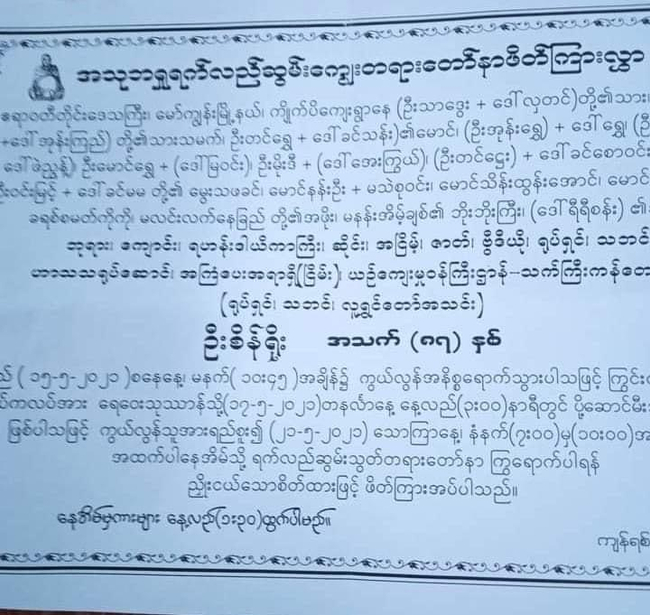 အသုဘရှုရက်လည်ဆွမ်းကျွေးတရားတော်နာဖိတ်ကြားလွှာ
ဧရာဝတီတိုင်းဒေသကြီး၊ မော်ကျွန်းမြို့နယ်၊ ကျိုက်ပိကျေးရွာနေ (ဦးသာဒွေး + ဒေါ်လှတင်)တို့၏သား၊
+ဒေါ်အုန်းကြည်) တို့၏သားသမက်၊ ဦးတင်ရွှေ + ဒေါ်ခင်သန်း)၏မောင်၊ (ဦးအုန်းရွှေ) + ဒေါ်ရွှေ၊ (ဦ
ဒေါ်ဖဲညွန့်)၊ ဦးမောင်ရွှေ + (ဒေါ်မြဝင်း)၊ ဦးမိုးဒီ + (ဒေါ်အေးကြွယ်)၊ (ဦးတင်ဌေး) + ဒေါ်ခင်စောဝင်း
ဦးဝင်းမြင့် + ဒေါ်ခင်မမ တို့၏ မွေးသဖခင်၊ မောင်နန်းဦး + မသဲစုဝင်း၊ မောင်သိန်းထွန်းအောင်၊ မောင်
ခရစ်စမတ်ကိုကို၊ မလင်းလက်နေခြည် တို့၏အဖိုး၊ မနန်းအိမ့်ချစ်၏ ဘိုးဘိုးကြီး၊ (ဒေါ်ရီရီစန်း) ၏
ဘုရား၊ ကျောင်း၊ ရဟန်းဒါယိကာကြီး၊ ဆိုင်း၊ အငြိမ့်၊ ဇာတ်၊ ဗွီဒီယို၊ ရုပ်ရှင်၊ သဘင်
ဟာသသရုပ်ဆောင်၊ အကြံပေးအရာရှိ(ငြိမ်း) ယဉ်ကျေးမှုဝန်ကြီးဌာန-သက်ကြီးကန်တေ
(ရုပ်ရှင်၊ သဘင်၊ လူရွှင်တော်အသင်း)
ဦးစိန်ရိုး အသက် (၈၇) နှစ်
သည် (၁၅-၅-၂၀၂၁)စနေနေ့၊ မနက်(၁၀း၄၅)အချိန်၌ ကွယ်လွန်အနိစ္စရောက်သွားပါသဖြင့် ကြွင်း
ပ်ကလပ်အား ရေဝေးသုသာန်သို့(၁၇-၅-၂၀၂၁)တနင်္လာနေ့ နေ့လည်(၃း၀၀)နာရီတွင် ပို့ဆောင်မီး
ဖြစ်ပါသဖြင့် ကွယ်လွန်သူအားရည်စူး၍ (၂၁-၅-၂၀၂၁) သောကြာနေ့၊ နံနက်(၇း၀၀)မှ(၁၀း၀၀)အ
အထက်ပါနေအိမ်သို့ ရက်လည်ဆွမ်းသွတ်တရားတော်နာ ကြွရောက်ပါရန်
ညှိုးငယ်သောစိတ်ထားဖြင့် ဖိတ်ကြားအပ်ပါသည်။
နေအိမ်မှကားများ နေ့လည်(၁း၃၀)ထွက်ပါမည်။
ကျန်ရစ်